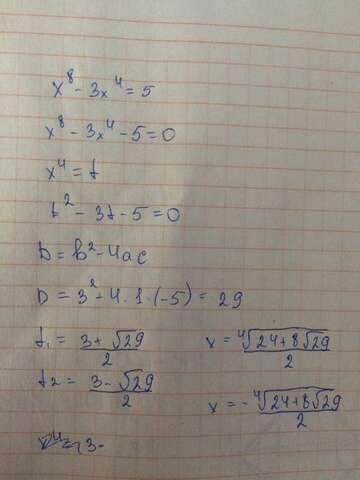 x⁸ - 3x⁴ = 5
x⁸ - 3x⁴ - 5 = 0
x⁴ = t
t² - 3t - 5 = 0
D = b² - 4ac
D = 3² + 4 · 1 · (-5) = 29
t₁ = (3 + √29)/2 x = ⁴√(24 + 8√29)/2
t₂ = (3 - √29)/2 x = - ⁴√(24 + 8√29)/2